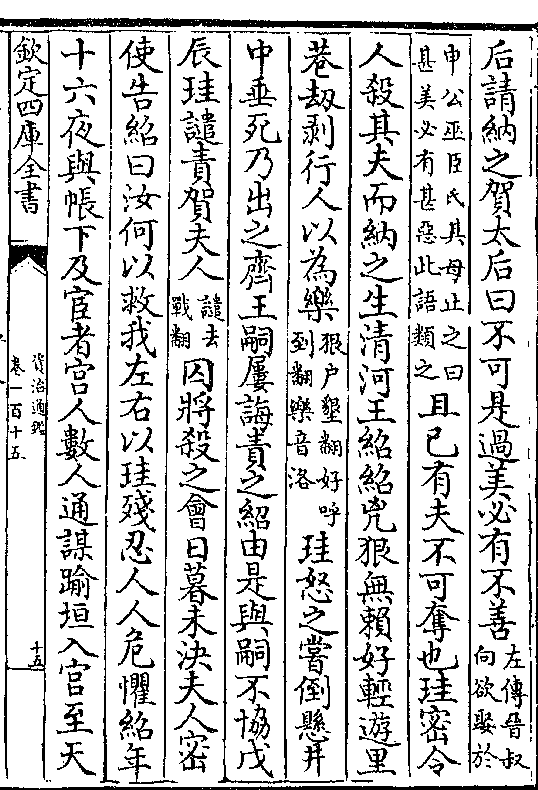 后請納之賀太后曰不可是過美必有不善左傳晉叔向欲娶於
申公巫臣氏其母止之曰甚美必有甚惡此語類之且已有夫不可奪也珪密令
人殺其夫而納之生清河王紹紹兇狠無賴好輕遊里
巷劫剥行人以為樂狠户墾翻好呼到翻樂音洛珪怒之嘗倒懸井
中垂死乃出之齊王嗣屢誨責之紹由是與嗣不協戊
辰珪譴責賀夫人譴去戰翻囚將殺之會日暮未決夫人密
使告紹曰汝何以救我左右以珪殘忍人人危懼紹年
十六夜與帳下及宦者宫人數人通謀踰垣入宫至天
欽定四庫全書
資治通鑑
卷一百十五
十五